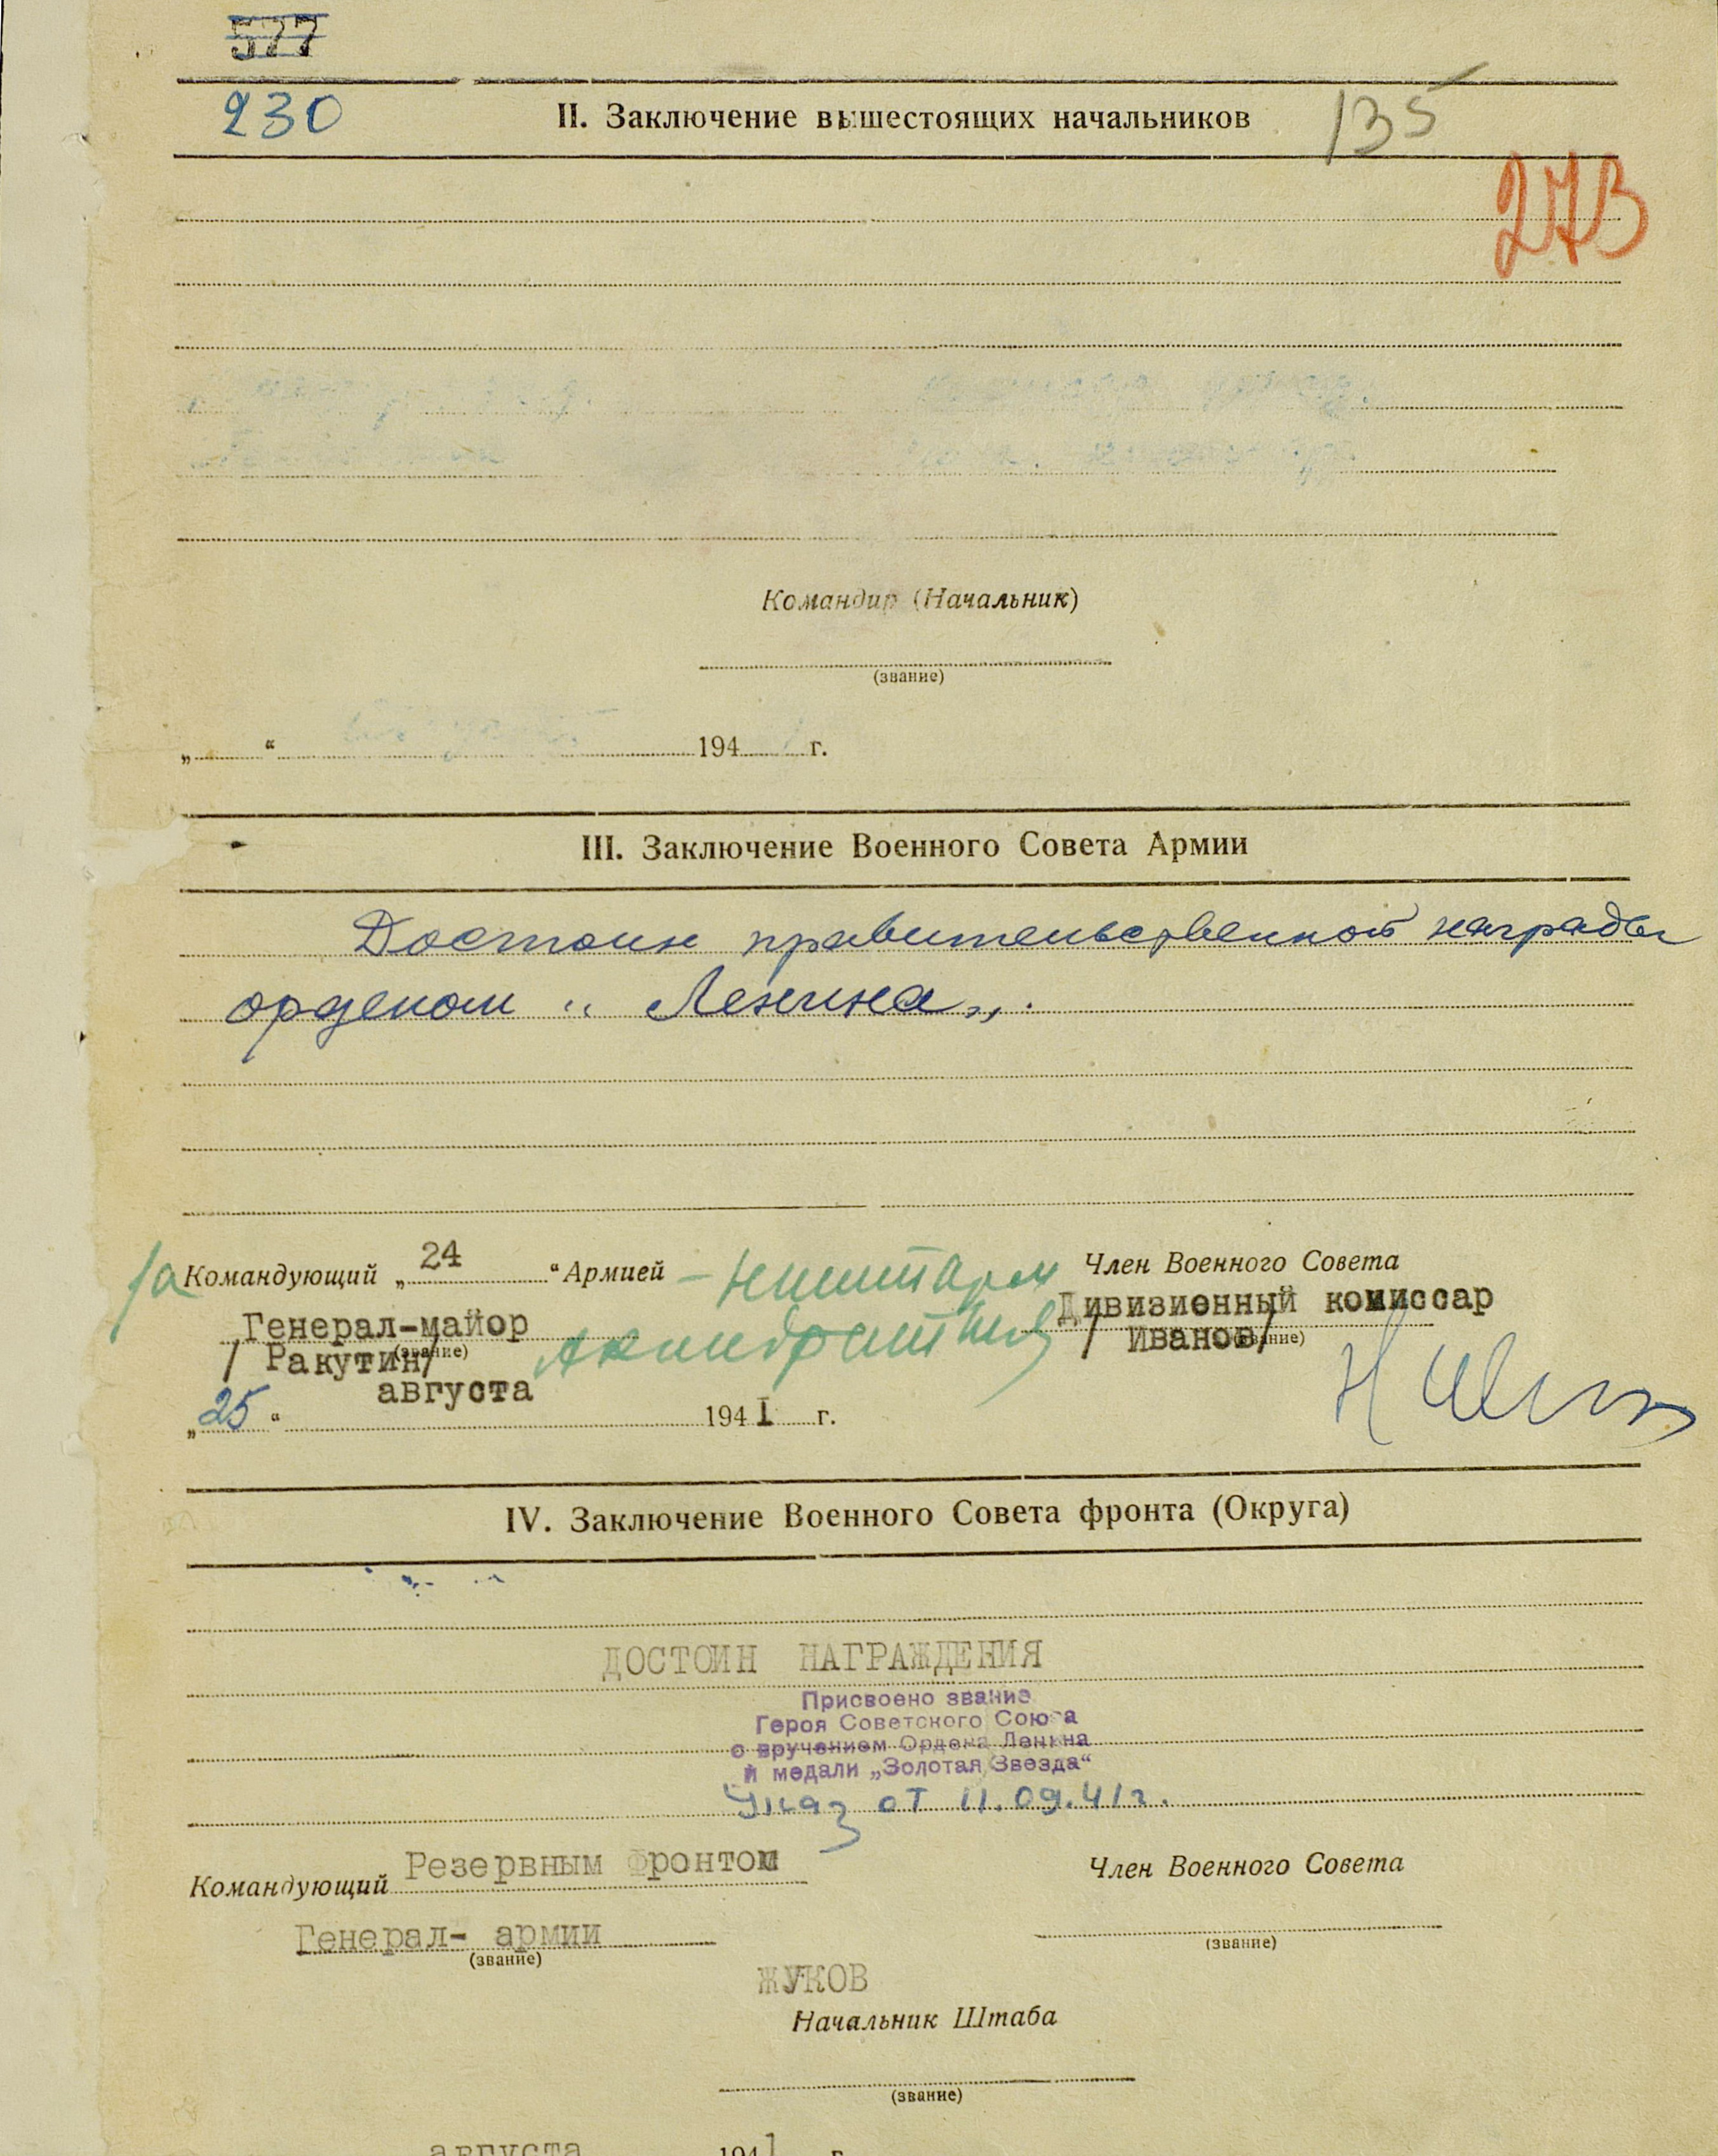 577
230
II. Заключение вышестоящих начальников 135
273
Командир (Начальник)
(звание)
„ “ 194 г.
III. Заключение Военного Совета Армии
Достоин правительственной награды
орденом „ Ленина „.
За Командующий „ 24 “ Армией – Член Военного Совета
Генерал-майор Дивизионный комиссар
(звание) (звание)
/ Ракутин/ / Иванов/
августа
„ 25 “ 194 I г.
IV. Заключение Военного Совета фронта (Округа)
ДОСТОИН НАГРАЖДЕНИЯ
Присвоено звание
Героя Советского Союза
с вручением Ордена Ленина
и медали „Золотая Звезда“
Указ от 11.09.41г.
Командующий Резервным фронтом Член Военного Совета
Генерал- армии
(звание) (звание)
ЖУКОВ
Начальник Штаба
(звание)
августа 194 1 г.